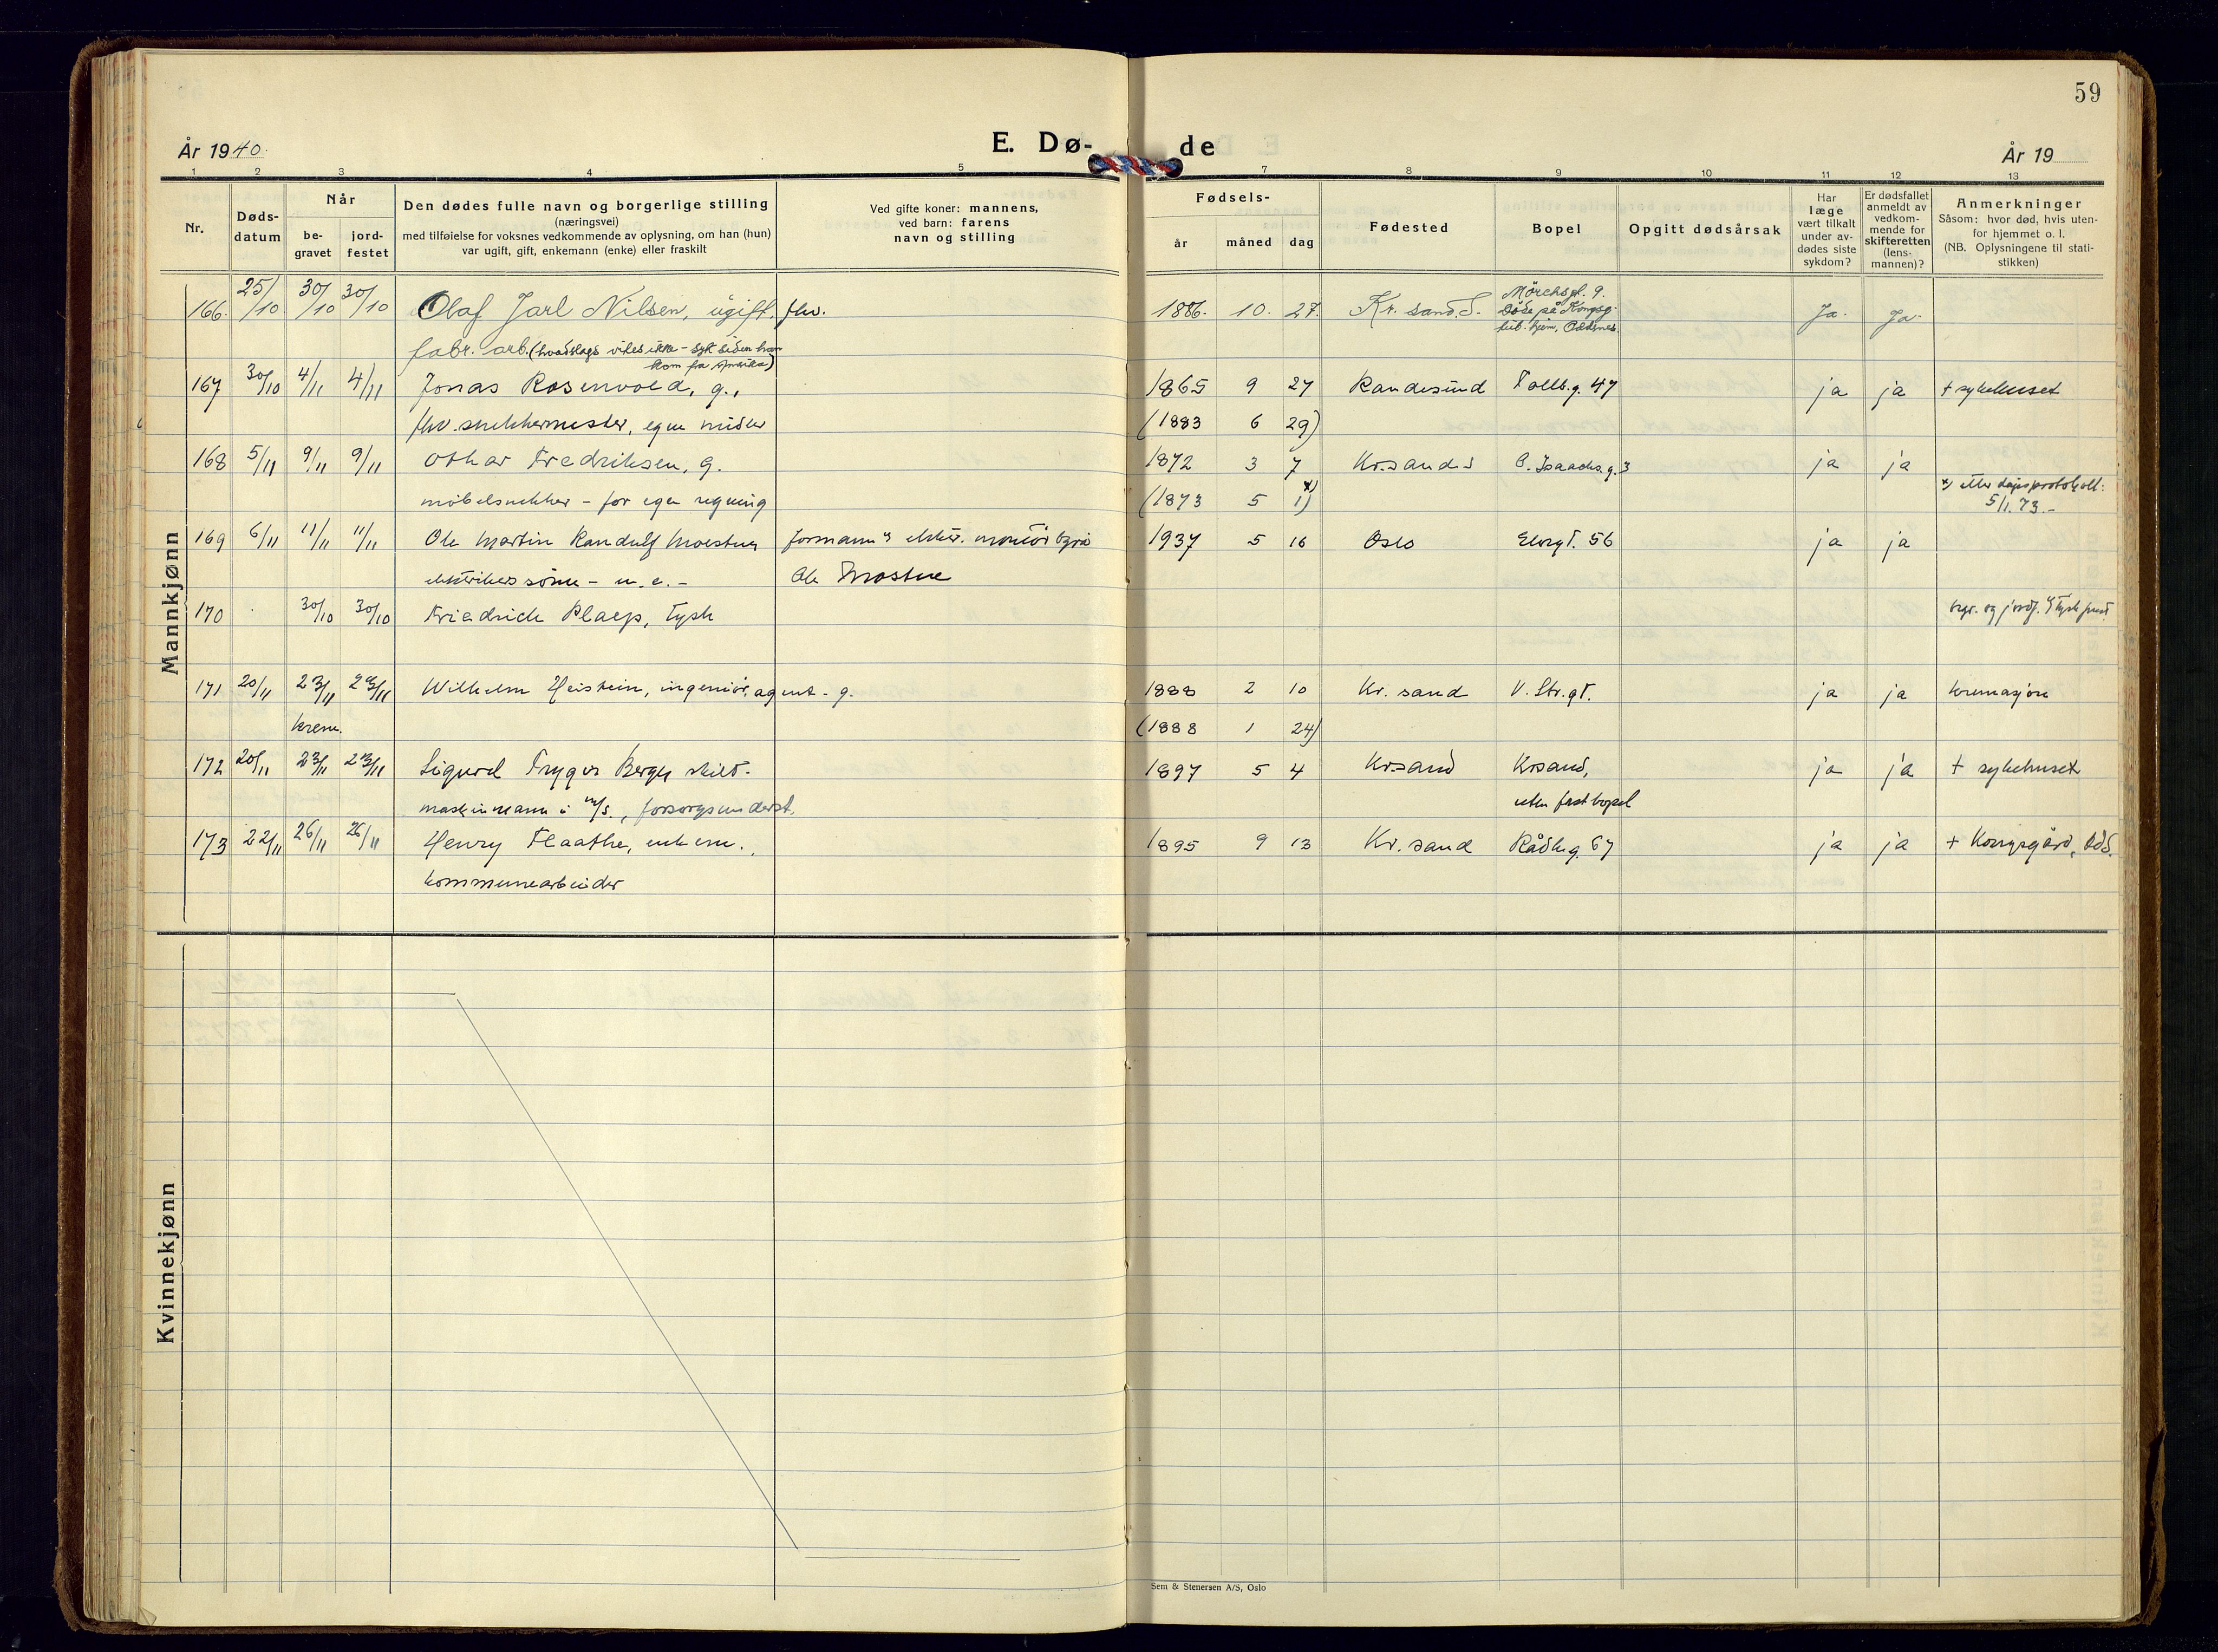 59
År 1940.
E. Dø-
de
År 19
1 2 3 4 5 7 8 9 10 11 12 13
Nr.
Døds-
datum
Når
be-
gravet
jord-
festet
Den dødes fulle navn og borgerlige stilling
(næringsvei)
med tilføielse for voksnes vedkommende av oplysning, om han (hun)
var ugift, gift, enkemann (enke) eller fraskilt
Ved gifte koner: mannens,
ved barn: farens
navn og stilling
Fødsels-
år måned dag
Fødested
Bopel
Opgitt dødsårsak
Har
læge
vært tilkalt
under av-
dødes siste
sykdom?
Er dødsfallet
anmeldt av
vedkom-
mende for
skifteretten
(lens-
mannen)?
Anmerkninger
Såsom: hvor død, hvis uten-
for hjemmet o. l.
(NB. Oplysningene til stati-
stikken)
Mannkjønn
166. 25/10 30/10 30/10 Olaf Jarl Nilsen, ugift, fhv. 1886. 10. 27. Kr. sand. S. Mørchsgt. 9. Ja. Ja.
Døde på Kongsg.
tub. hjem, Oddernes
fabr. arb. (hvadslags vites ikke - syk siden han
kom fra Amerika)
167 30/10 4/11 4/11 Jonas Rosenvold, g., 1865 9 27 Randesund Tollb.g. 47 ja ja + sykehuset
fhv. snekkermester, egne midler (1883 6 29)
168 5/11 9/11 9/11 Othar Fredriksen, g. 1872 3 7 Kr.sand S. Isaachs.g. 3 ja ja
møbelsnekker - for egen regning (1873 5 1) x) x) etter dåpsprotokoll:
5/1. 73.-
169 6/11 11/11 11/11 Ole Martin Randulf Moestue formann i elektr. montørbyrå 1937 5 16 Oslo Elvegt. 56 ja ja
elektrikers sønn - u. e. - Ole Mostue
170 30/10 30/10 Friedrich Plaep, tysk begr. og jordf. af tysk prest
171 20/11 23/11 23/11 Wilhelm Heistein, ingeniør, agent - g. 1888 2 10 Kr. sand V. Str.gt. ja ja kremasjon
krem. (1888 1 24)
172 20/11 23/11 23/11 Sigurd Trygve Berge skilt. 1897 5 4 Krsand Krsand, ja ja + sykehuset
maskinmann i m/s., forsorgsunderst. uten fast bopel
173 22/11 26/11 26/11 Henry Flaathe, enkem., 1895 9 13 Kr. sand Rådh.g. 67 ja ja + Kongsgård, Odd.
kommunearbeider
Kvinnekjønn
Sem & Stenersen A/S, Oslo